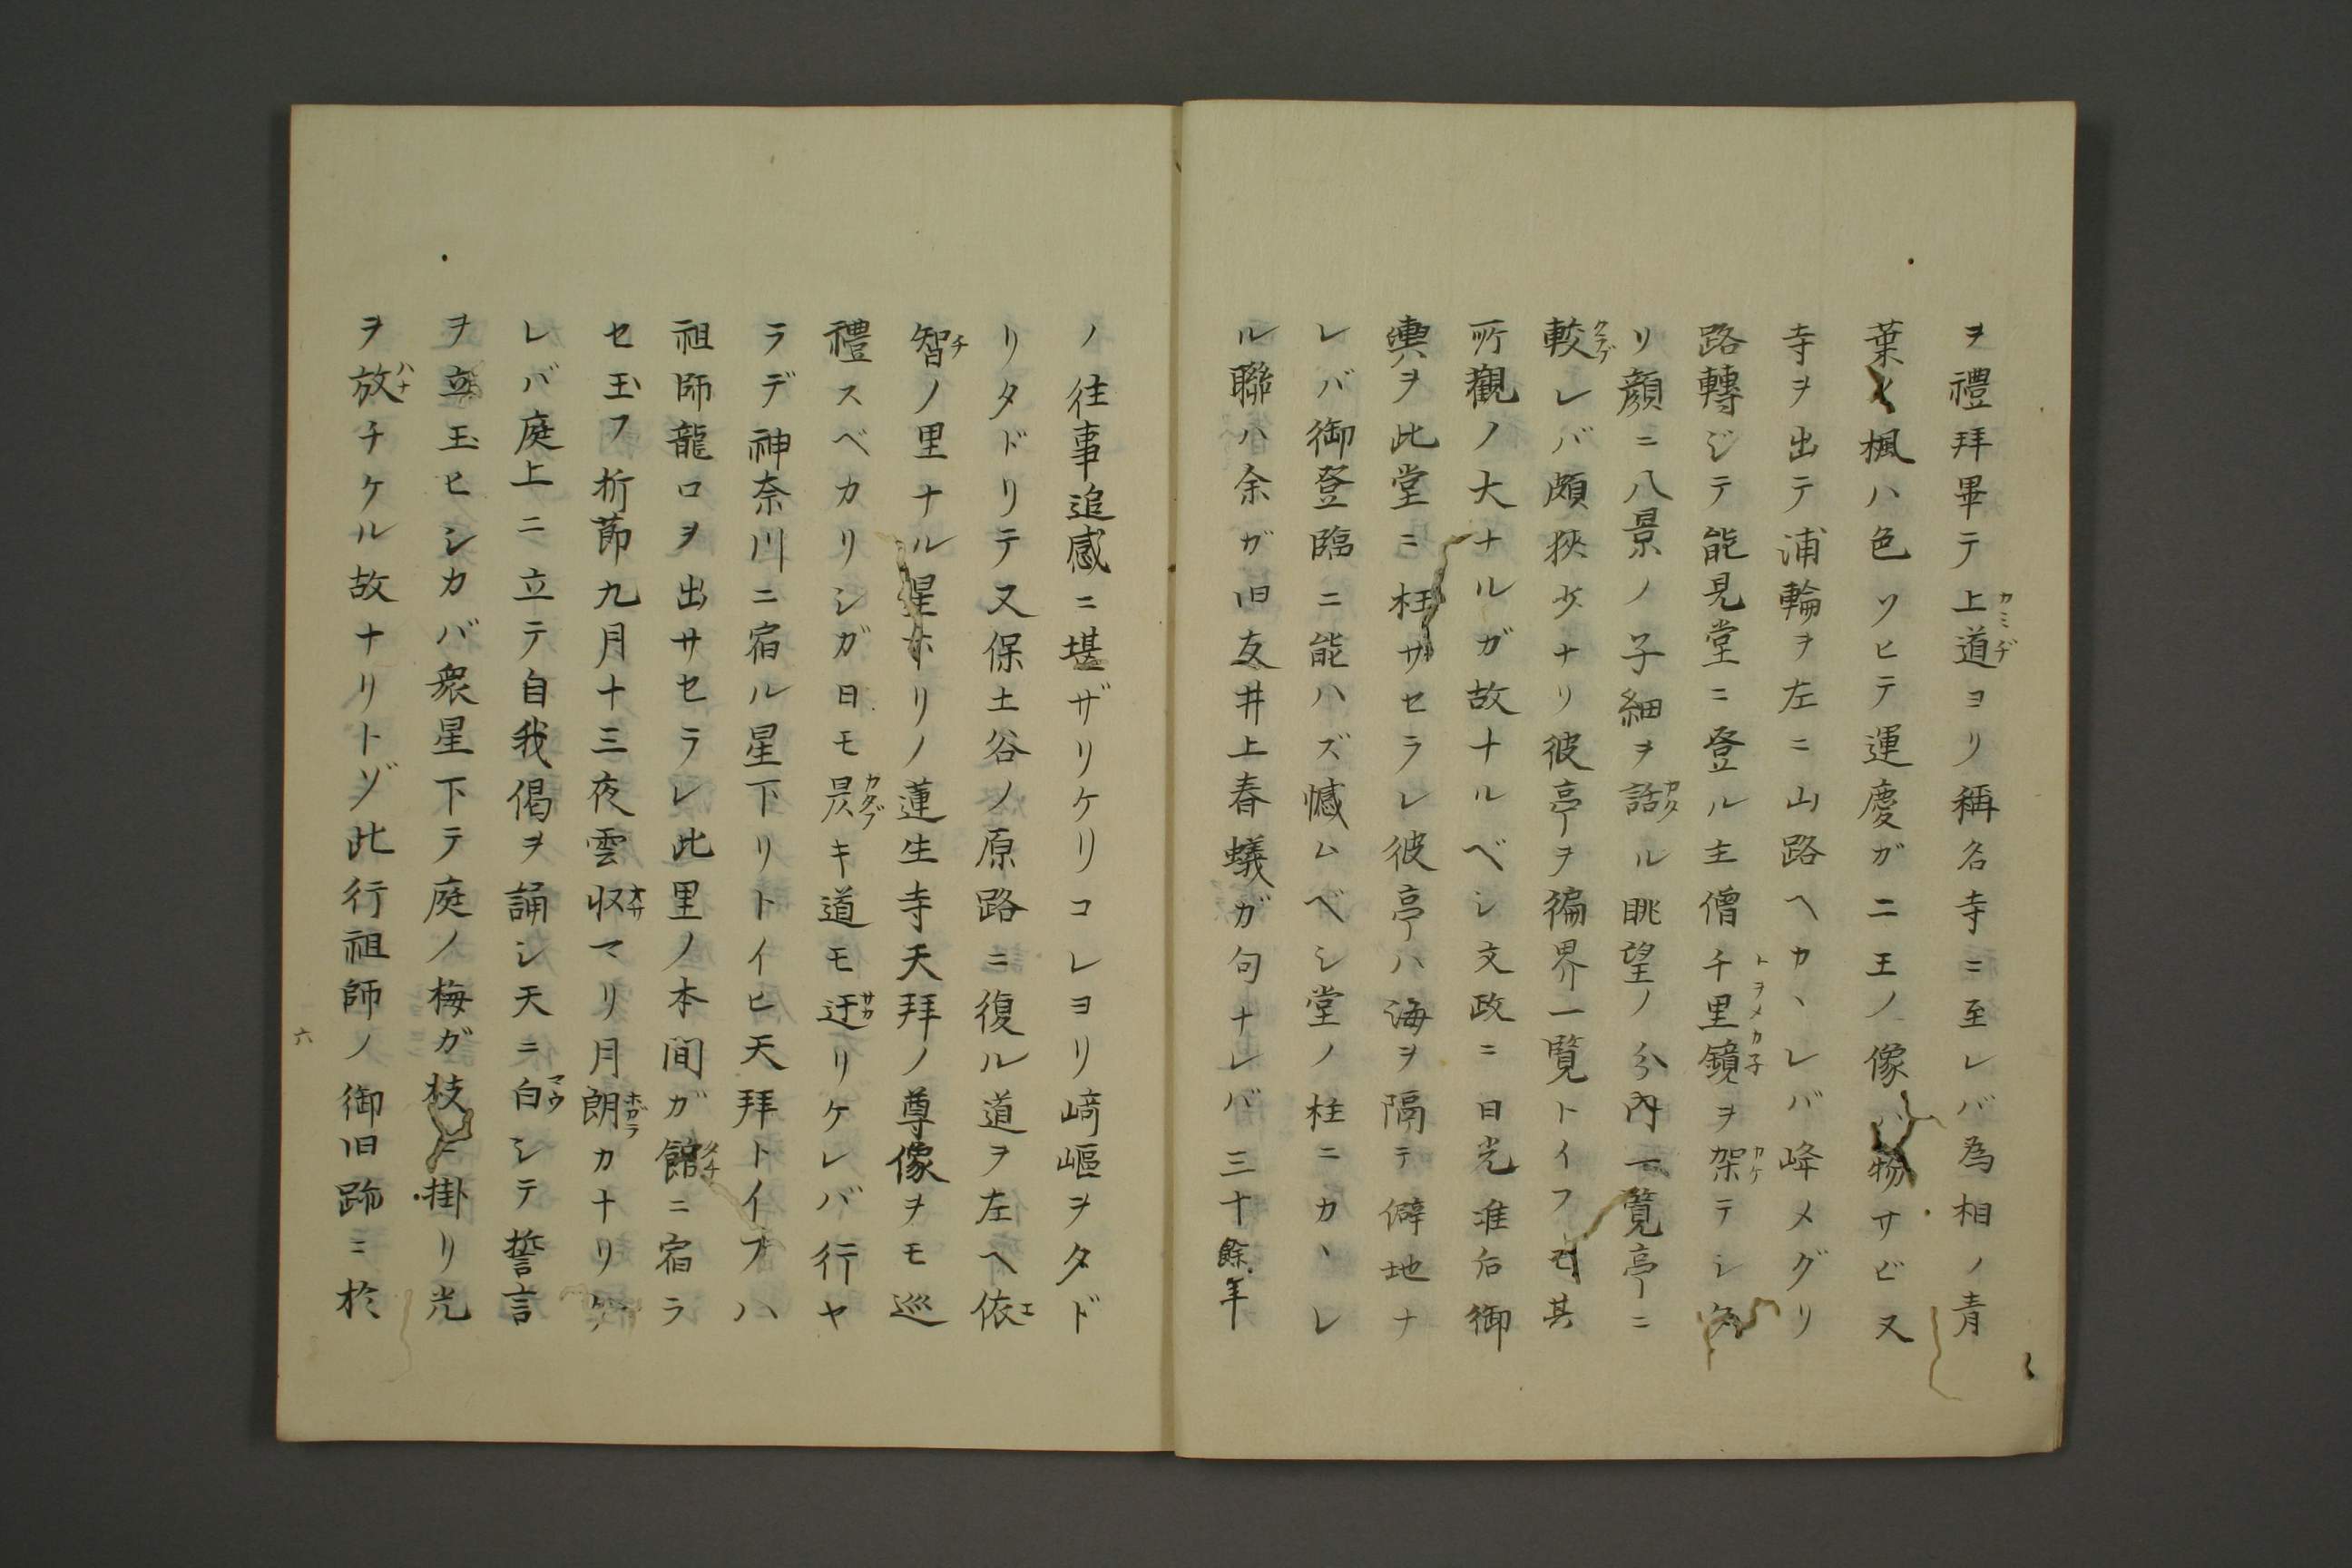 ヲ禮拜畢テ上道ヨリ稱名寺ニ至レバ為相ノ青
葉ノ楓ハ色ソヒテ運慶ガ二王ノ像ハ物サビ又
寺ヲ出テ浦輪ヲ左ニ山路ヘカヽレバ峰メグリ
路轉ジテ能見堂ニ登ル主僧千里鏡ヲ架テシ
リ顔ニ八景ノ子細ヲ話ル眺望ノ分内一覽亭ニ
較レバ頗狹少ナリ彼亭ヲ徧界一覧トイフモ其
所觀ノ大ナルガ故ナルベシ文政ニ日光准后御
輿ヲ此堂ニ枉サセラレ彼亭ハ海ヲ隔テ僻地ナ
レバ御登臨ニ能ハズ憾ムベシ堂ノ柱ニカヽレ
ル聯ハ余ガ旧友井上春蟻ガ句ナレバ三十餘年
ノ往事追感ニ堪ザリケリコレヨリ﨑嶇ヲタド
リタドリテ又保土谷ノ原路ニ復ル道ヲ左ヘ依
智ノ里ナル星ホリノ蓮生寺天拜ノ尊像ヲモ巡
禮スベカリシガ日モ昃キ道モ迂リケレバ行ヤ
ラデ神奈川ニ宿ル星下リトイヒ天拜トイフハ
祖師龍口ヲ出サセラレ此里ノ本間ガ館ニ宿ラ
セ玉フ折節九月十三夜雲収マリ月朗カナリケ
レバ庭上ニ立テ自我偈ヲ誦シ天ニ白シテ誓言
ヲ立玉ヒシカバ衆星下テ庭ノ梅ガ枝ニ掛リ光
ヲ放チケル故ナリトゾ此行祖師ノ御旧跡ニ於
六